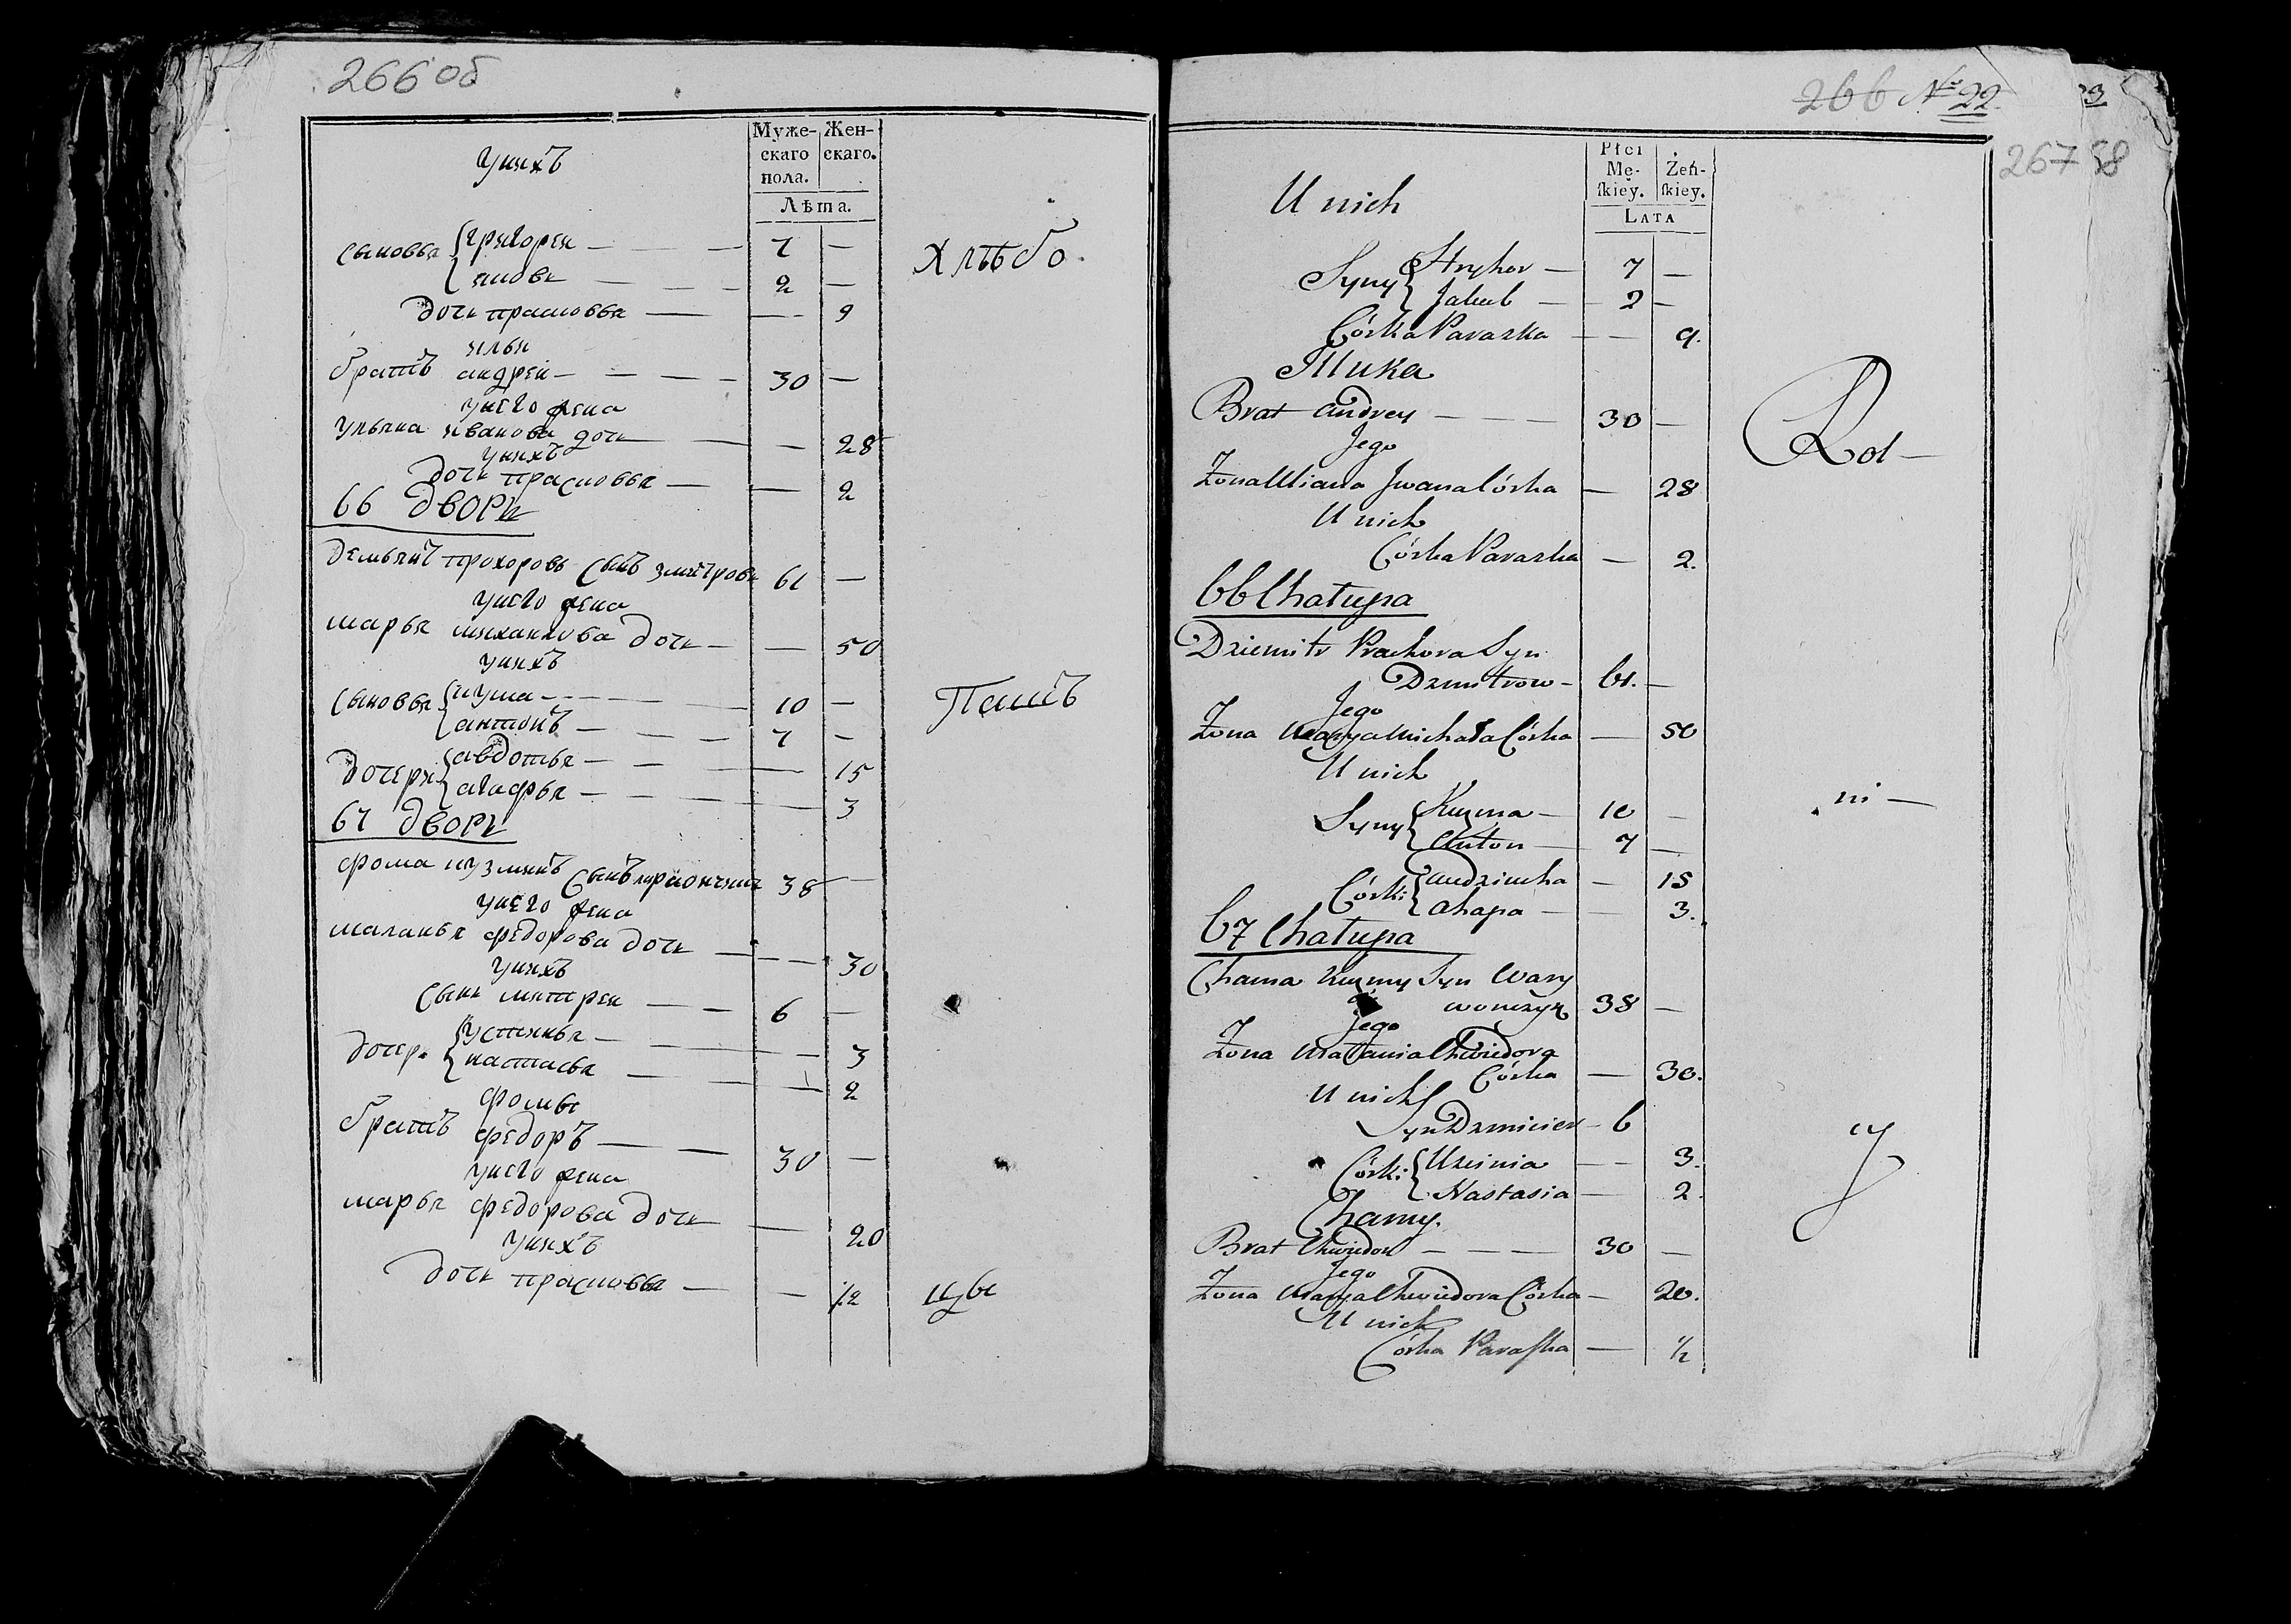 266 об
Муже- Жен-
скаго скаго.
пола.
Лѣта.
унихъ
Сыновья григореи — 7 —
яковъ — 2 —
дочь прасковья — — 9
ильи
братъ андреи — 30 —
унего жена
ульяна иванова дочь — — 28
унихъ
дочь прасковья — — 2
66 дворъ
демьянъ прохоровъ сынъ змитровъ 61 —
унего жена
марья михаилова дочь — — 50
унихъ
Сыновья кузма — 10 —
антонъ — 7 —
дочери авдотья — — 15
агафья — — 3
67 дворъ
фома кузминъ сынъ 38 —
унего жена
маланья федорова дочь — — 30
унихъ
Сынъ митреи — 6 —
дочер. устинья — — 3
настасья — — 2
фомы
братъ федоръ — 30 —
унего жена
марья федорова дочь — — 20
унихъ
дочь прасковья — — 1/2
Хлѣбо
Пашъ
цы
266 № 22
23
267 58
Płci
Mę- Żeń-
ſkiey. ſkiey.
LATA
U nich
Syny Hryhor — 7 —
Jakub — 2 —
Córka Paraska — — 9.
Illuka
Brat Andrey — 30 —
Jego
Żona Uliana Jwana Córka — 28
U nich
Córka Paraska — 2.
66 Chatupa
Dziemitr Prachora Syn
Dzmitrow — 61. —
Jego
Żona Marya Michała Córka — 50
U nich
Syny Kuzma — 10 —
Anton — 7 —
Córki Audziucha — 15
Ahapa — — 3.
67 Chatupa
Chama Kuzmy Syn Wary
wonczyk 38 —
Jego
Żona Małania Chwiedora
Córka — 30.
U nich
Syn Dzmiciey — 6
Córki Uscinia — — 3.
Nastasia — 2.
Chamy.
Brat Chwiedor — — — 30 —
Jego
Żona Marya Chwiedora Córka — 20.
U nich
Córka Paraſka — 1/2
Rol —
ni —
cy